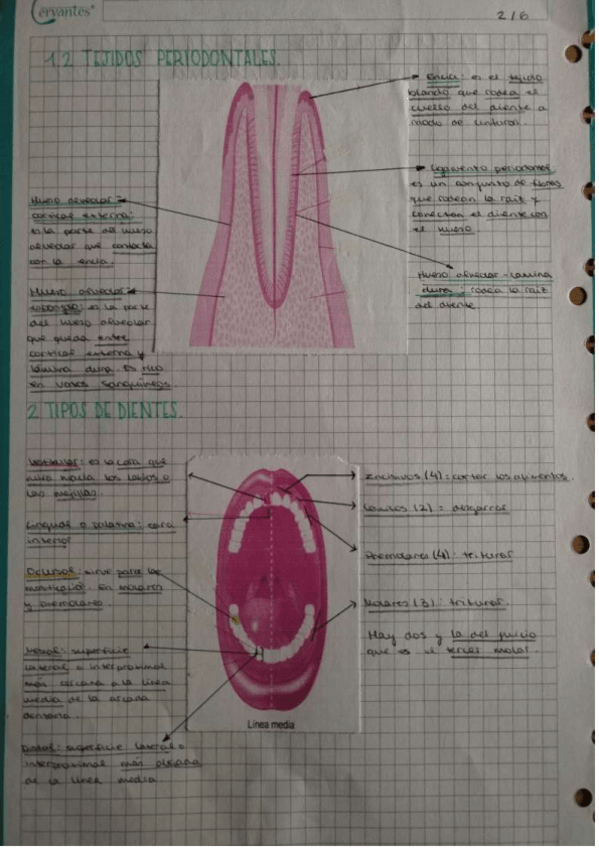 Cervantes
2/6
1.2 TEJIDOS PERIODONTALES.
Encía: es el tejido
blando que rodea el
cuello del diente a
modo de cinturón.
Ligamento periodontal
es un conjunto de fibras
que rodean la raíz y
conectan el diente con
el hueso.
Hueso alveolar - lámina
dura: rodea la raíz
del diente
Hueso alveolar =
cortical externa:
es la parte del hueso
alveolar que contacta
con la encía.
Hueso alveolar
esponjoso: es la parte
del hueso alveolar
que queda entre
cortical externa y
lámina dura. Es rico
en vasos sanguíneos.
2 TIPOS DE DIENTES.
Vestibular: es la cara que
mira hacia los labios o
las mejillas.
Lingual o palatina: cara
interior
Oclusal: sirve para la
masticación. En molares
y premolares.
Mesial: superficie
lateral o interproximal
más cercana a la línea
media de la arcada
dentaria.
Distal: superficie lateral o
interproximal más alejada
de la línea media
Incisivos (4): cortar los alimentos.
Caninos (2): desgarrar
Premolares (4): triturar
Molares (3): triturar.
Hay dos y la del juicio
que es el tercer molar.
Línea media